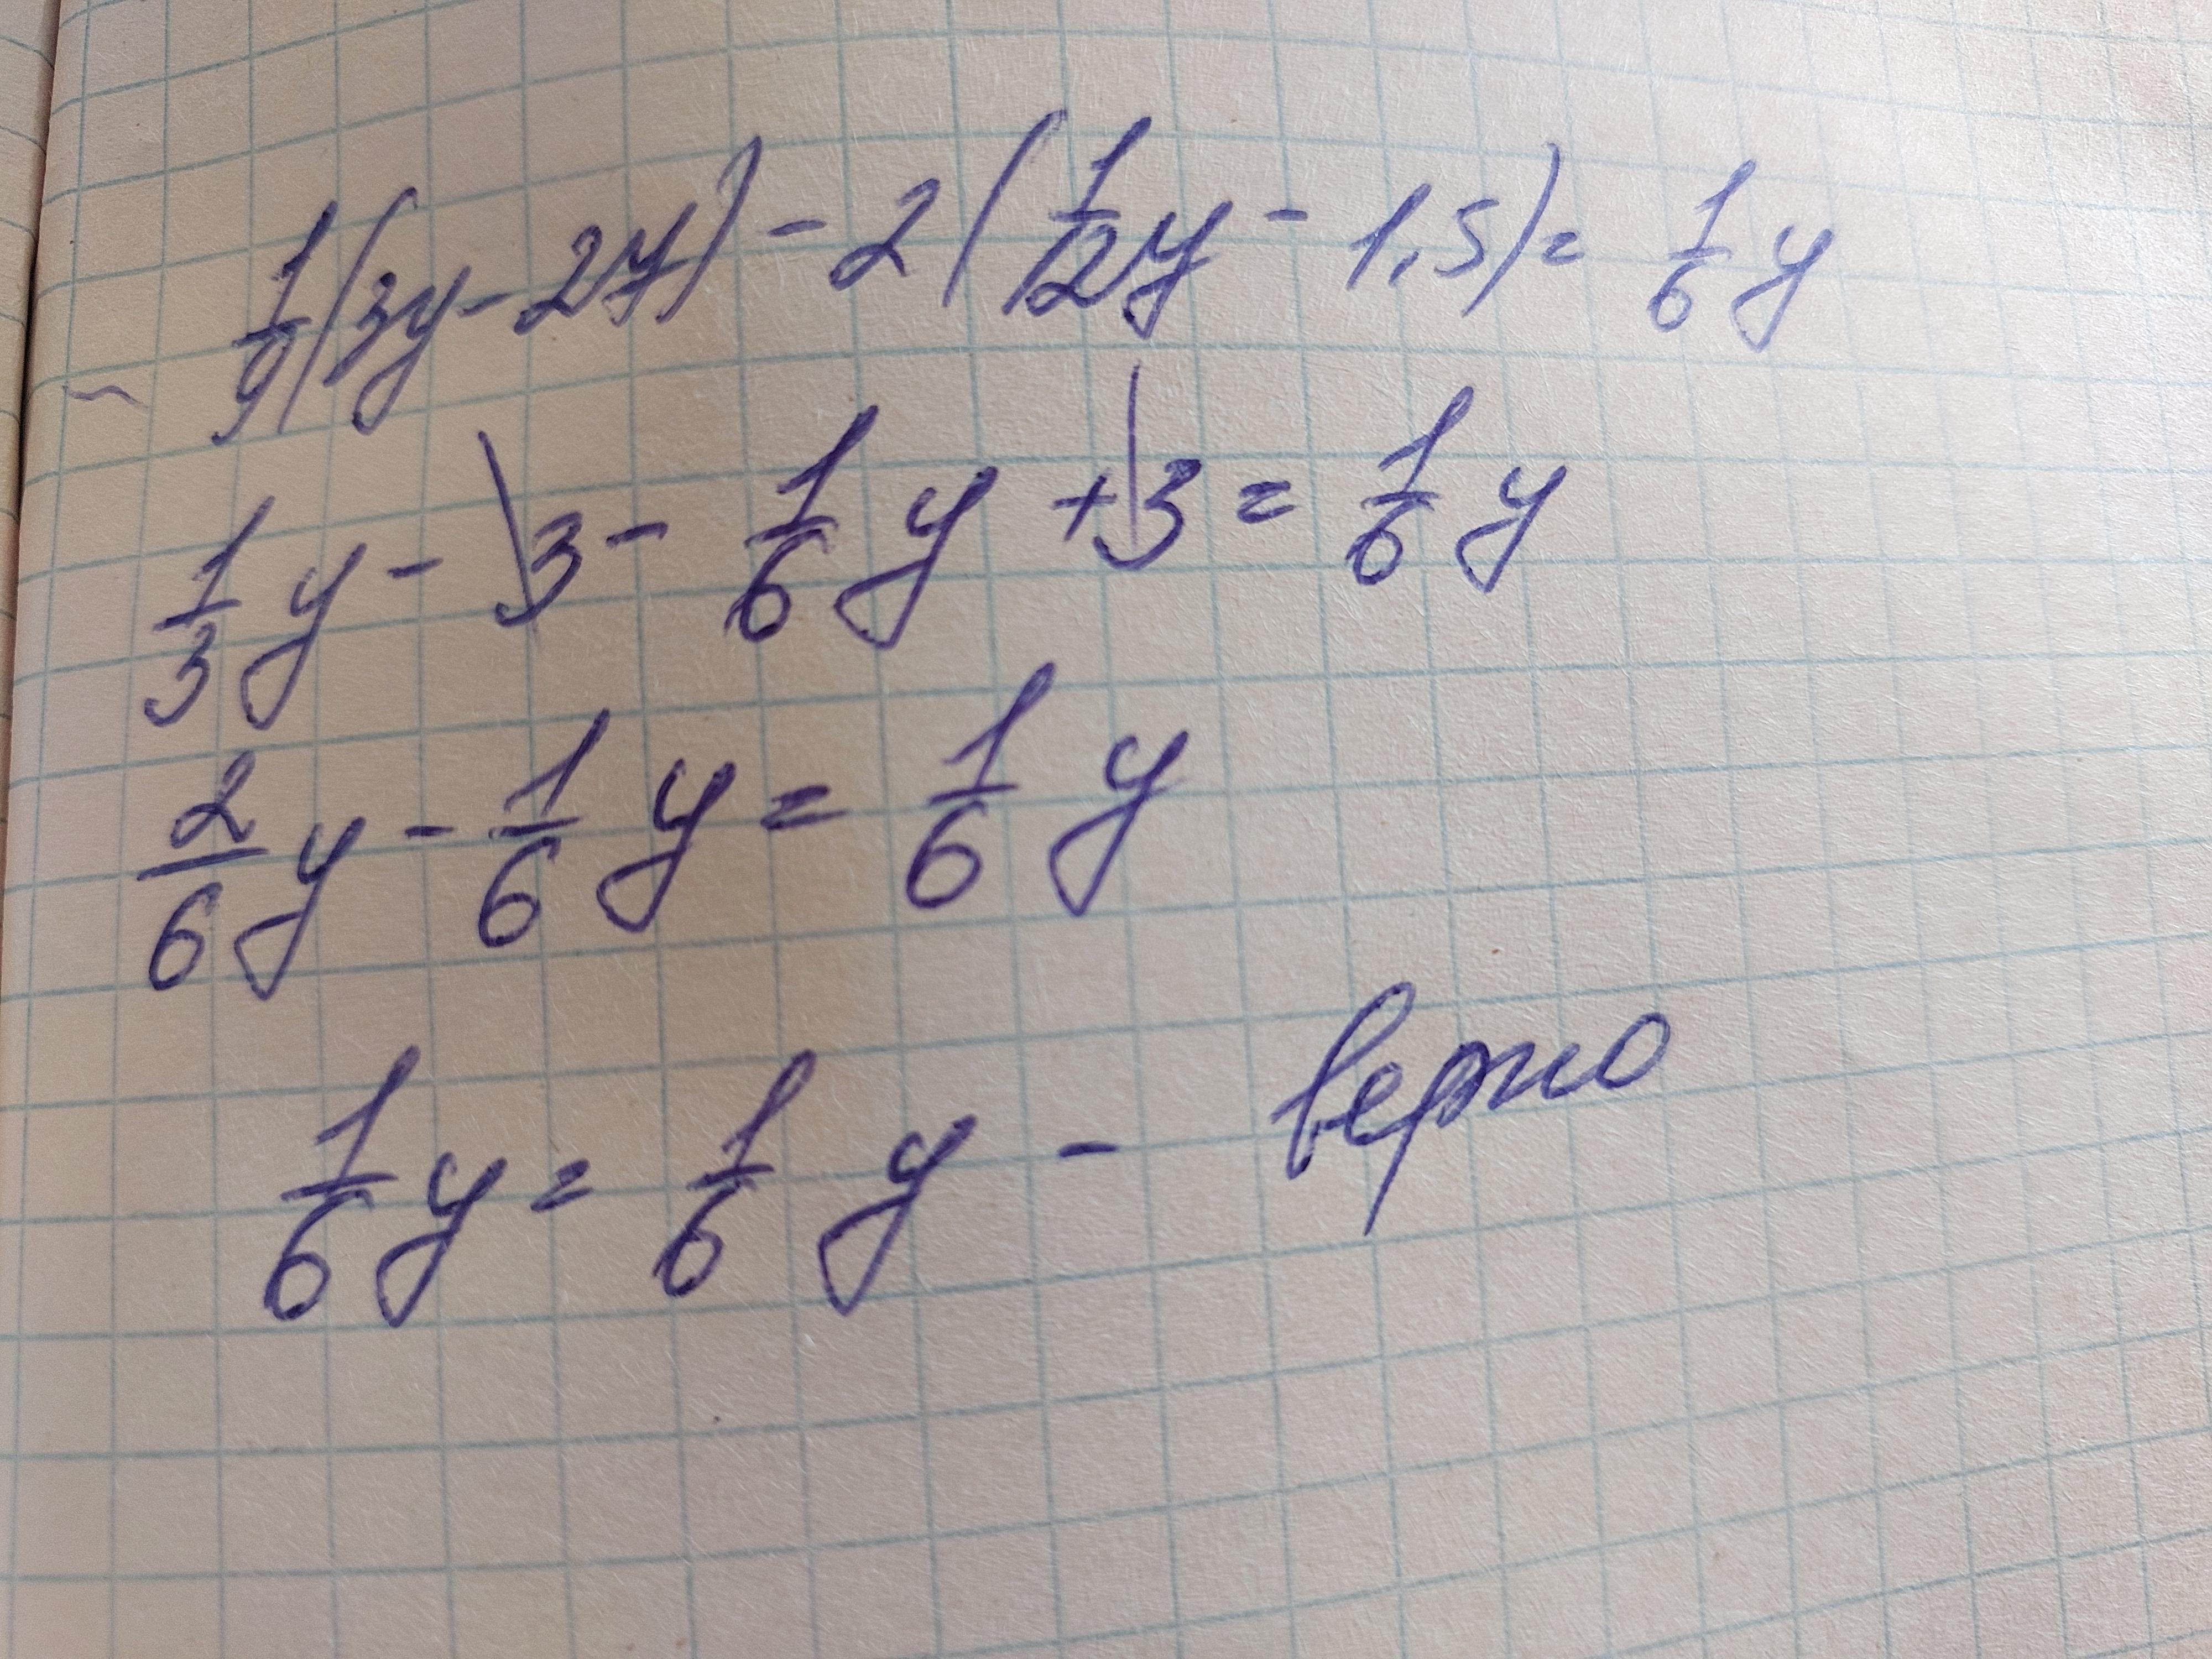 1/9(3y-27)-2(1/12y-1,5)=1/6y
1/3y-3-1/6y+3=1/6y
2/6y-1/6y=1/6y
1/6y=1/6y - верно